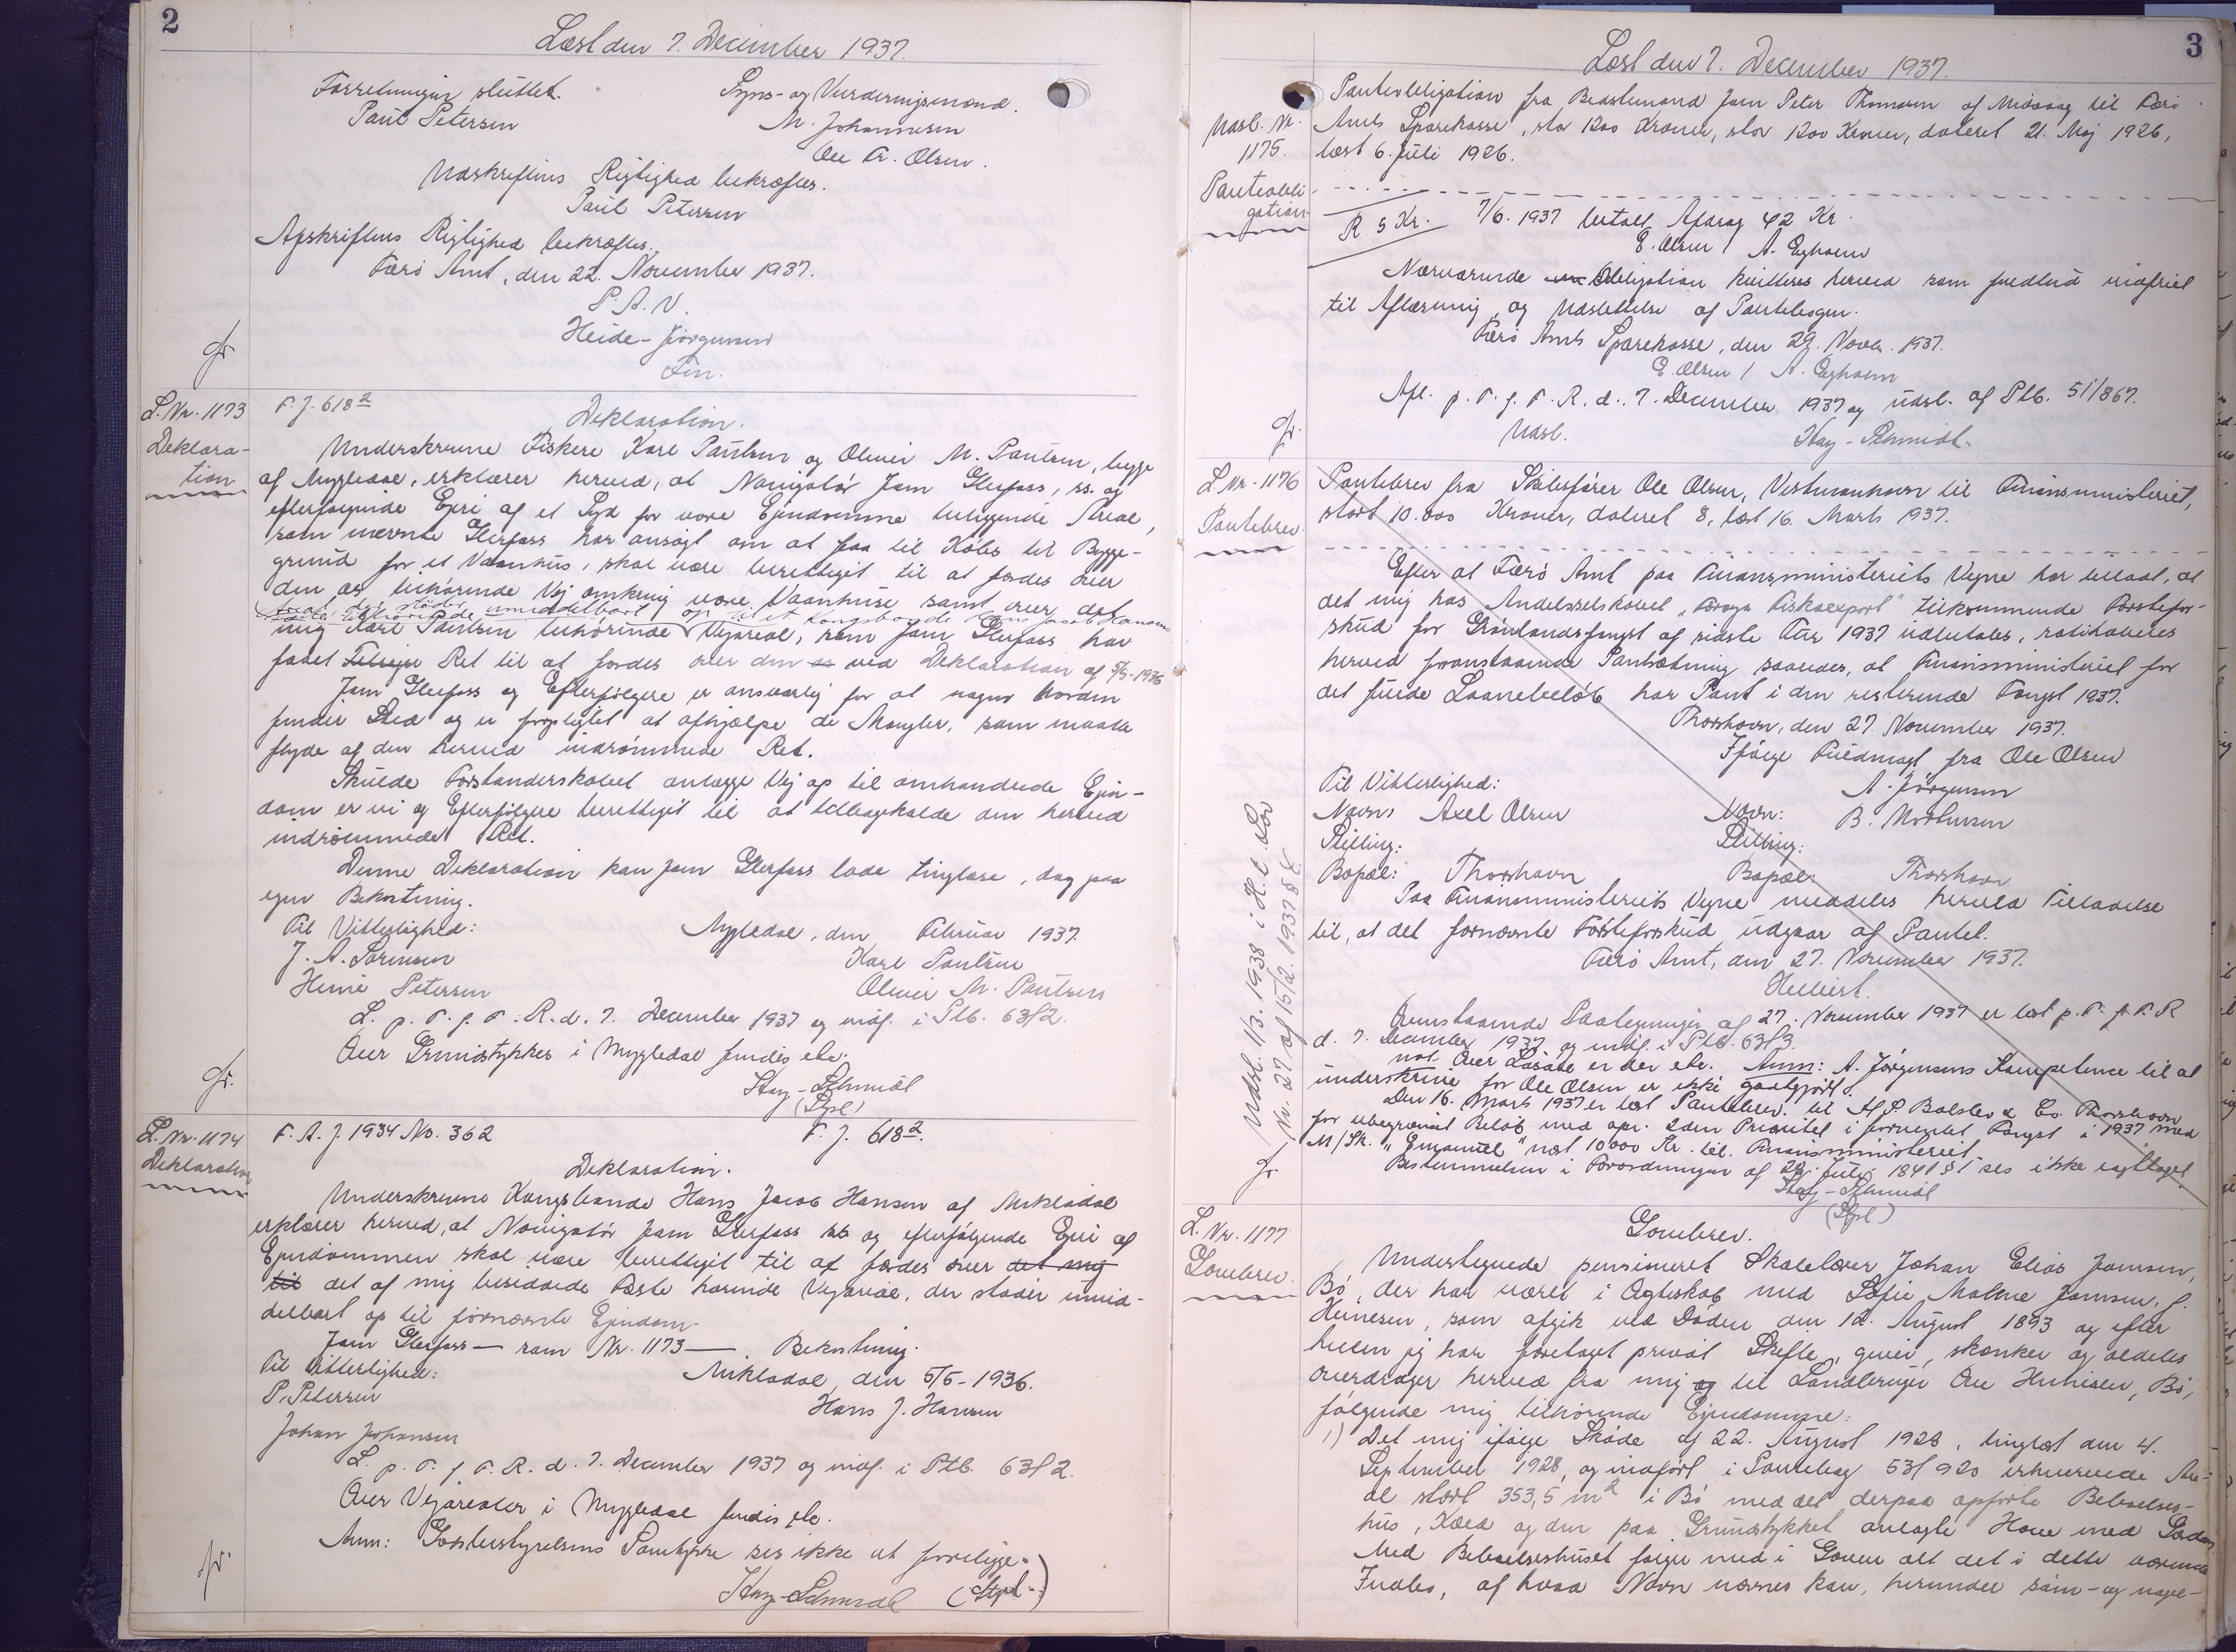 2
Læst den 7. December 1937.
Forretningen sluttet. Syns- og Vurderingsmænd.
Paul Petersen M. Johannesen
Ole Fr. Olsen.
Udskriftens Rigtighed bekræftes.
Paul Petersen
Afskriftens Rigtighed bekræftes.
Færø Amt, den 22. November 1937.
P. A. V.
Heide-Jørgensen
Fm.
L. Nr. 1173
Deklara-
tion
F. J. 618²
Deklaration.
Underskrevne Fiskere Karl Paulsen og Oliver M. Paulsen, begge
af Mygledal, erklærer herved, at Navigatør Jam Glerfoss, ss. og
efterfølgende Ejere af et Stykke for vore Ejendomme beliggende Areal,
som nævnte Glerfoss har ansøgt om at faa til Købs til Bygge-
grund for et Vaanhus, skal være berettiget til at færdes over
den os tilhørende Vej omkring vore Vaanhuse samt over det
Areal, der støder umiddelbart op til et Kongsbonde Hans Jacob Hansen
mig Karl Paulsen tilhørende Vejareal, som Jam Glerfoss har
faaet Ret til at færdes over den ved Deklaration af 5/5-1936
Jam Glerfoss og Efterfølgere er ansvarlig for at nogen Uorden
finder Sted og er forpligtet at afhjælpe de Mangler, som maatte
flyde af den herved indrømmede Ret.
Skulde Forstanderskabet anlægge Vej op til omhandlede Ejen-
dom er vi og Efterfølgere berettiget til at tilbagekalde den herved
indrømmede Ret.
Denne Deklaration kan Jam Glerfoss lade tinglæse, dog paa
egen Bekostning.
Til Vitterlighed: Mygledal, den Februar 1937.
J. A. Sørensen Karl Paulsen
Heine Petersen Oliver M. Paulsen
L. p. T. f. F. R. d. 7. December 1937 og indf. i Ptb. 63/2.
Over Grundstykker i Mygledal findes ebr.
Hay-Schmidt
(Stpl)
L. Nr. 1174
Deklaration
F. A. J. 1934 No. 362 F. J. 618².
Deklaration.
Underskrevne Kongsbonde Hans Jacob Hansen af Mikladal
erklærer herved, at Navigatør Jam Glerfoss ss og efterfølgende Ejere af
Ejendommen skal være berettiget til at færdes over det mig
til det af mig besiddede Fæste hørende Vejareal, der støder umid-
delbart op til fornævnte Ejendom.
Jam Glerfoss — som Nr. 1173 — . Bekostning.
Til Vitterlighed: Mikladal, den 5/5-1936.
P. Petersen Hans J. Hansen
Johan Johansen
L. p. T. f. F. R. d. 7. December 1937 og indf. i Ptb. 63/2.
Over Vejarealer i Mygledal findes ebr.
Anm: Fæstestyrelsens Samtykke ses ikke at foreligge.
Hay-Schmidt (Stpl.)
3
Læst den 7. December 1937.
Udsl. Nr.
1175.
Panteobli-
gation
Panteobligation fra Bestemand Jam Peter Thomsen af Midvaag til Færø
Amts Sparekasse, stor 1200 Kroner, stor 1200 Kroner, dateret 21. Maj 1926,
læst 6. Juli 1926.
R 5 Kr. 7/6. 1937 betalt Afdrag 42 Kr.
E. Olsen / A. Egholm
Nærværende Obligation kvitteres herved som fuldtud indfriet
til Aflæsning og Udslettelse af Pantebogen.
Færø Amts Sparekasse, den 29. Novbr. 1937.
E. Olsen / A. Egholm
Afl. p. T. f. F. R. d. 7. December 1937 og udsl. af Ptb. 51/867.
Udsl. Hay-Schmidt.
L. Nr. 1176
Pantebrev
Pantebrev fra Skibsfører Ole Olsen, Vestmanhavn til Finansministeriet,
stort 10.000 Kroner, dateret 8, læst 16. Marts 1937.
Efter at Færø Amt paa Finansministeriets Vegne har tilladt, at
det mig hos Andelsselskabet „Føroya Fiskaexport" tilkommende Førstefor-
skud for Grønlandsfangst af sidste Tur 1937 udbetales, ratihaberes
herved foranstaaende Pantsætning saaledes, at Finansministeriet for
det fulde Laanebeløb har Pant i den resterende Fangst 1937.
Thorshavn, den 27. November 1937.
Ifølge Fuldmagt fra Ole Olsen
Til Vitterlighed: A. Jörgensen
Navn: Axel Olsen Navn: B. Mortensen
Stilling: Stilling:
Bopæl: Thorshavn Bopæl: Thorshavn
Paa Finansministeriets Vegne meddeles herved Tilladelse
til, at det fornævnte Førsteforskud udgaar af Pantet.
Færø Amt, den 27. November 1937.
Hilbert.
Omstaaende Paategninger af 27. November 1937 er læst p. T. f. F. R
d. 7. December 1937 og indf. i Ptb. 63/3.
Over er der ebr. Anm: A. Jørgensens Kompetence til at
underskrive for Ole Olsen er ikke godtgjort.
Den 16. Marts 1937 er læst Pantebrev til H. P. Balslev & Co. Thorshavn
for ubegrænset Beløb med opr. 2den Prioritet i forventet Fangst i 1937 med
M/Sk. „Emanuel" næst 10000 Kr. til Finansministeriet.
Bestemmelsen i Forordningen af 28. Juli 1841 § 1 ses ikke iagttaget.
Hay-Schmidt
(Stpl)
Udsl. 1/3. 1938 i H. t. Lov
Nr. 27 af 15/2. 1937 § 8
L. Nr. 1177
Gavebrev.
Gavebrev.
Undertegnede pensioneret Skolelærer Johan Elias Jamsen,
Bø, der har været i Ægteskab med Sofie Malene Jamsen, f.
Heinesen, som afgik ved Døden den 12. August 1893 og efter
hvem jeg har foretaget privat Skifte, giver, skænker og aldeles
overdrager herved fra mig og til Landbruger Ole Heinesen, Bø,
følgende mig tilhørende Ejendomme:
1) Det mig ifølge Skøde af 22. August 1928, tinglæst den 4.
September 1928, og indført i Pantebog 53/920 erhvervede Are-
al stort 353,5 m² i Bø med det derpaa opførte Beboelses-
hus, Kæld og den paa Grundstykket anlagte Have med
Med Beboelseshuset følger med i Gaven alt det i dette værende
Indbo, af hvad Navn nævnes kan, herunder søm- og nagel-